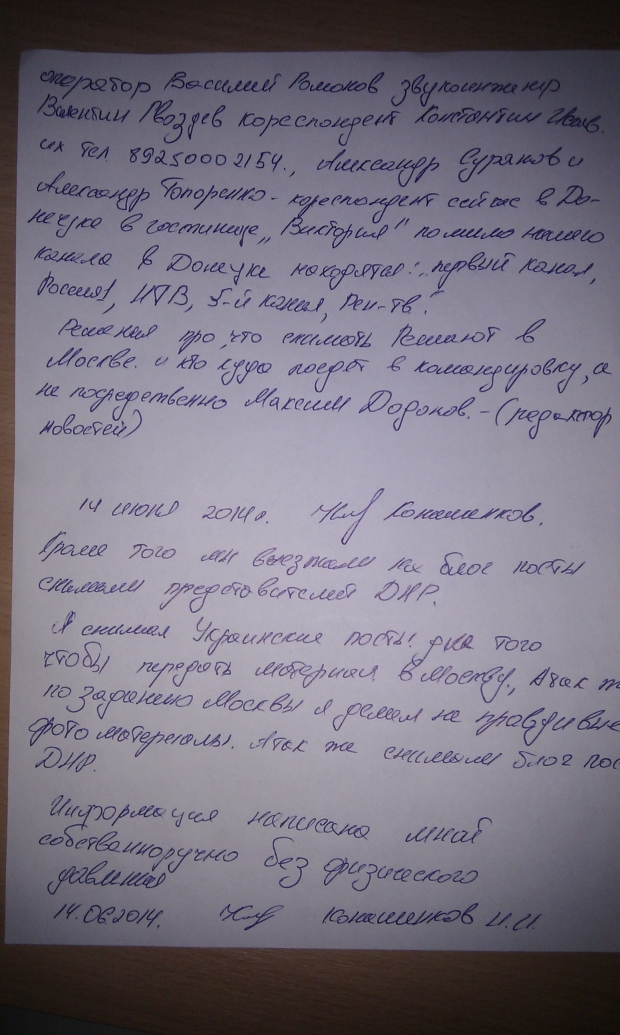 оператор Василий Романов звукоинженер
Валентин Гвоздев кореспондент Константин
их тел. 89250002154., Александр Суранов и
Александр Топоренко - кореспондент сейчас в До-
нецке в гостинице „Виктория" помимо нашего
канала в Донецке находятся: „первый канал,
Россия1, НТВ, 5-й канал, Рен-тв."
Решения про что снимать Решают в
Москве. и кто куда поедет в командировку, а
не посредственно Максим Додонов. - (редактор
новостей)
14 июня 2014г. Конашенков.
Кроме того мы выезжали на блог посты
снимали представителей ДНР.
Я снимал Украинские посты! для того
чтобы передать материал в Москву., А так ж
по заданию Москвы я делал не правдивые
фото материалы. А так же снимали блог пос
ДНР.
Информация написана мной
собственноручно без физического
давления
14.06.2014. Конашенков Н.И.